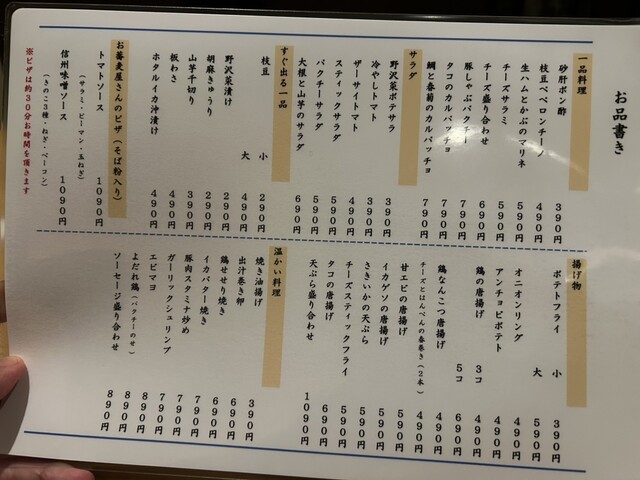 お品書き
一品料理
砂肝ポン酢 390円
枝豆ペペロンチーノ 490円
生ハムとかぶのマリネ 590円
チーズサラミ 590円
チーズ盛り合わせ 690円
豚しゃぶパクチー 790円
タコのカルパッチョ 790円
鯛と春菊のカルパッチョ 790円
サラダ
野沢菜ポテサラ 390円
冷やしトマト 390円
ザーサイトマト 490円
スティックサラダ 590円
パクチーサラダ 590円
大根と山芋のサラダ 690円
すぐ出る一品
枝豆 小 290円
大 490円
野沢菜漬け 290円
胡麻きゅうり 290円
山芋千切り 390円
板わさ 490円
ホタルイカ沖漬け 490円
お蕎麦屋さんのピザ(そば粉入り)
トマトソース 1090円
(サラミ・ピーマン・玉ねぎ)
信州味噌ソース 1090円
(きのこ3種・ねぎ・ベーコン)
※ピザは約30分お時間を頂きます
揚げ物
ポテトフライ 小 390円
大 590円
オニオンリング 490円
アンチョビポテト 490円
鶏の唐揚げ 3コ 490円
5コ 690円
鶏なんこつ唐揚げ 490円
チーズとはんぺんの春巻き(2本) 490円
甘エビの唐揚げ 590円
イカゲソの唐揚げ 590円
さきいかの天ぷら 590円
チーズスティックフライ 590円
タコの唐揚げ 690円
天ぷら盛り合わせ 1090円
温かい料理
焼き油揚げ 390円
出汁巻き卵 690円
鶏せせり焼き 690円
イカバター焼き 790円
豚肉スタミナ炒め 790円
ガーリックシュリンプ 790円
エビマヨ 890円
よだれ鶏(パクチーのせ) 890円
ソーセージ盛り合わせ 890円